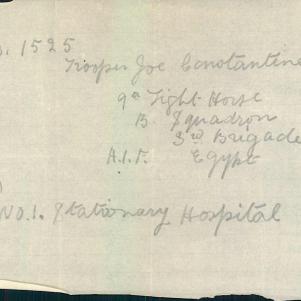 . 1525
Trooper Joe Constantine
9th Light Horse
B. Squadron
3rd Brigade
A.I.F. Egypt
)
No.1. Stationary Hospital